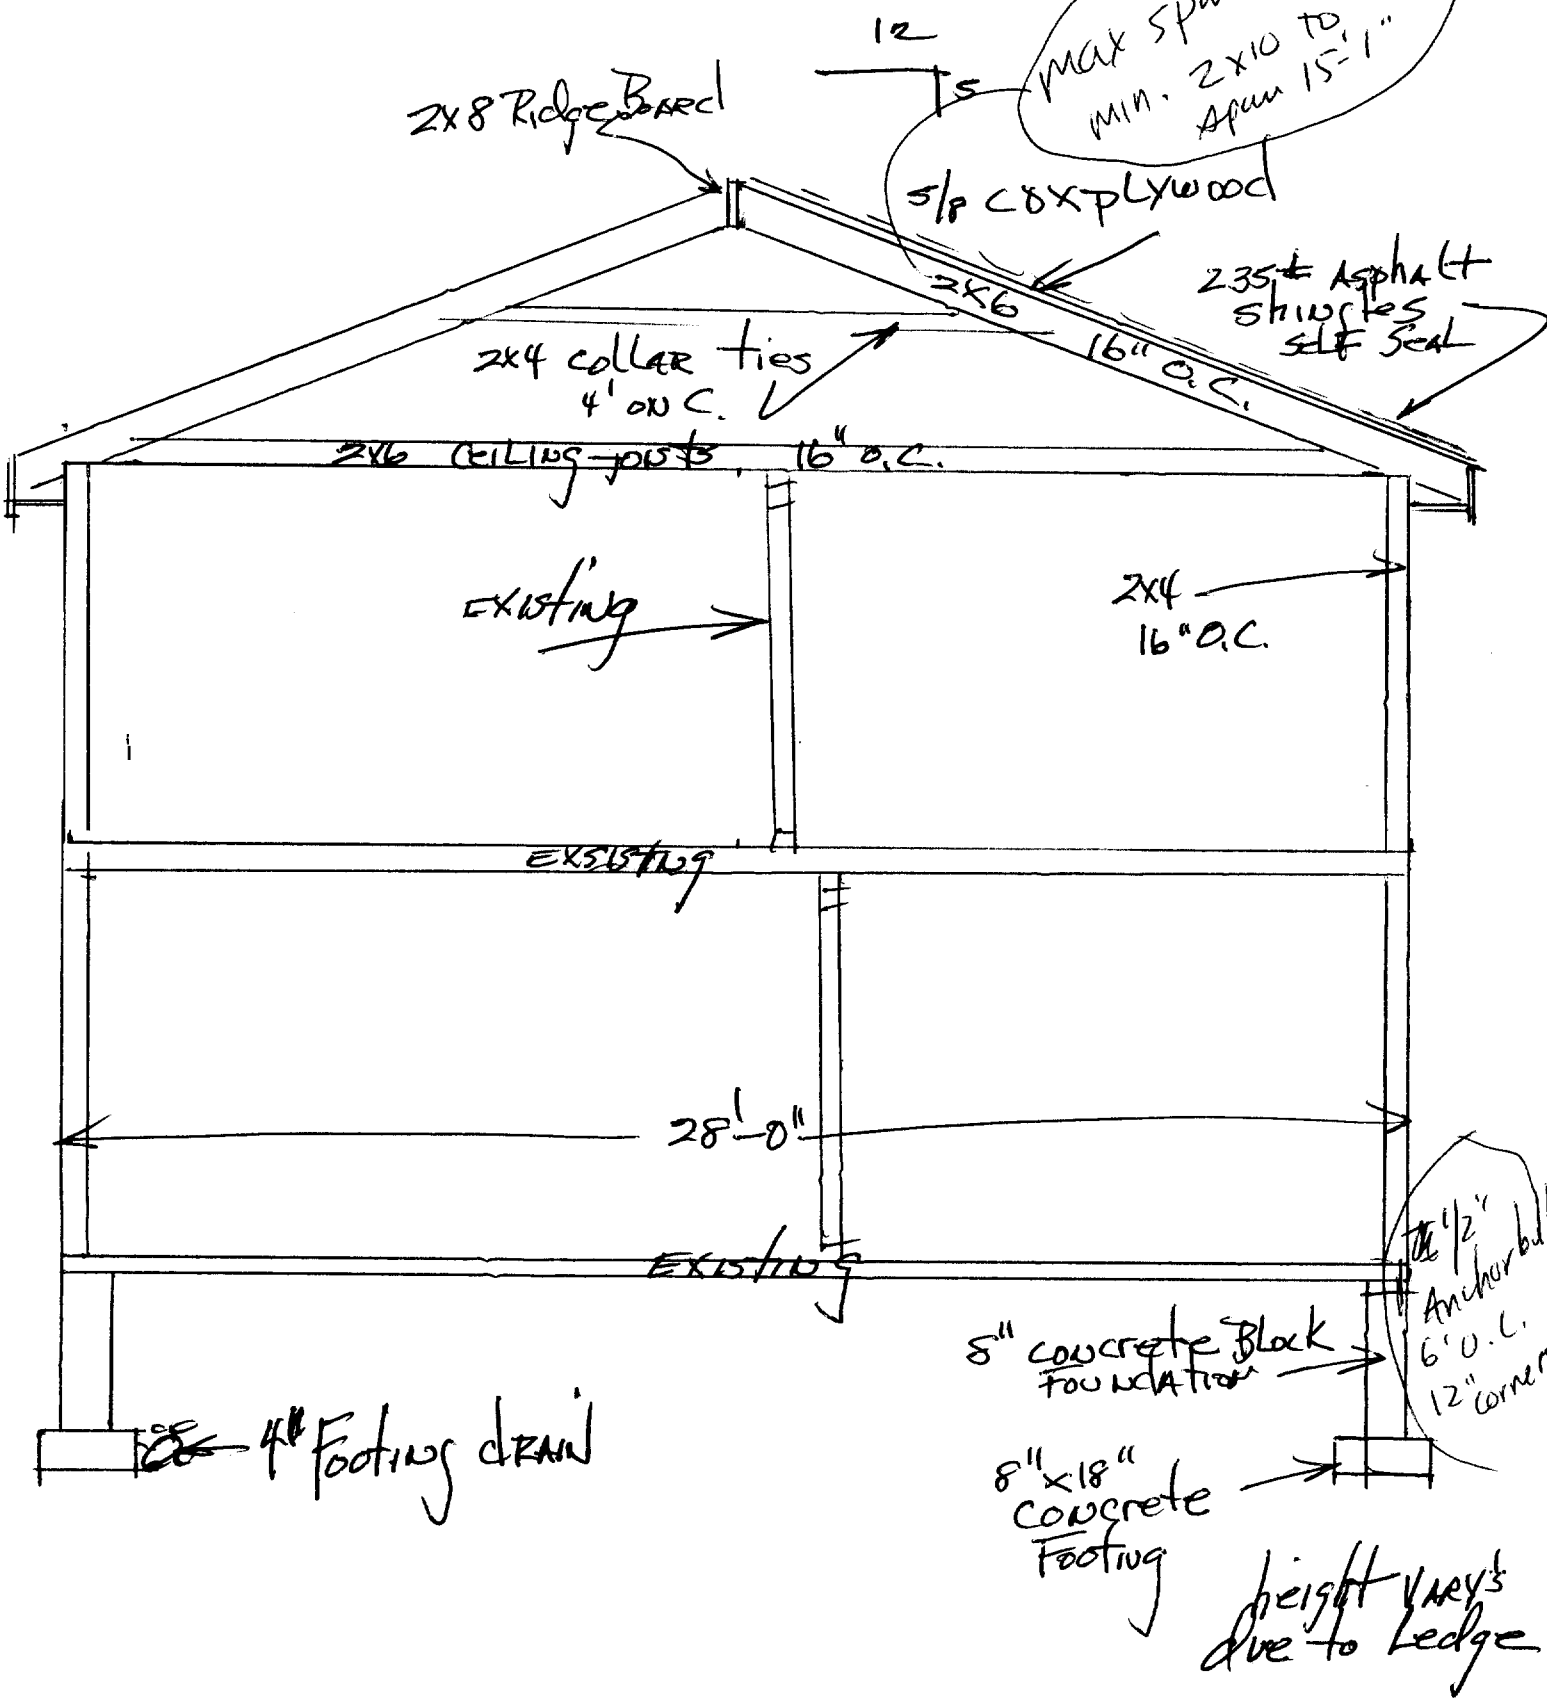 12
5
max
min. 2x10 to
span 15'-1"
2x8 Ridge Board
5/8 CDX plywood
235# Asphalt
shingles
self seal
2x6
16" O.C.
2x4 collar ties
4' on C.
2x6 ceiling joists 16" O.C.
Existing
2x4
16" O.C.
Exsisting
28'-0"
Existing
1/2"
Anchor
6' O.C.
12"
8" concrete Block
Foundation
4" Footing drain
8"x18"
concrete
Footing
height vary's
due to Ledge